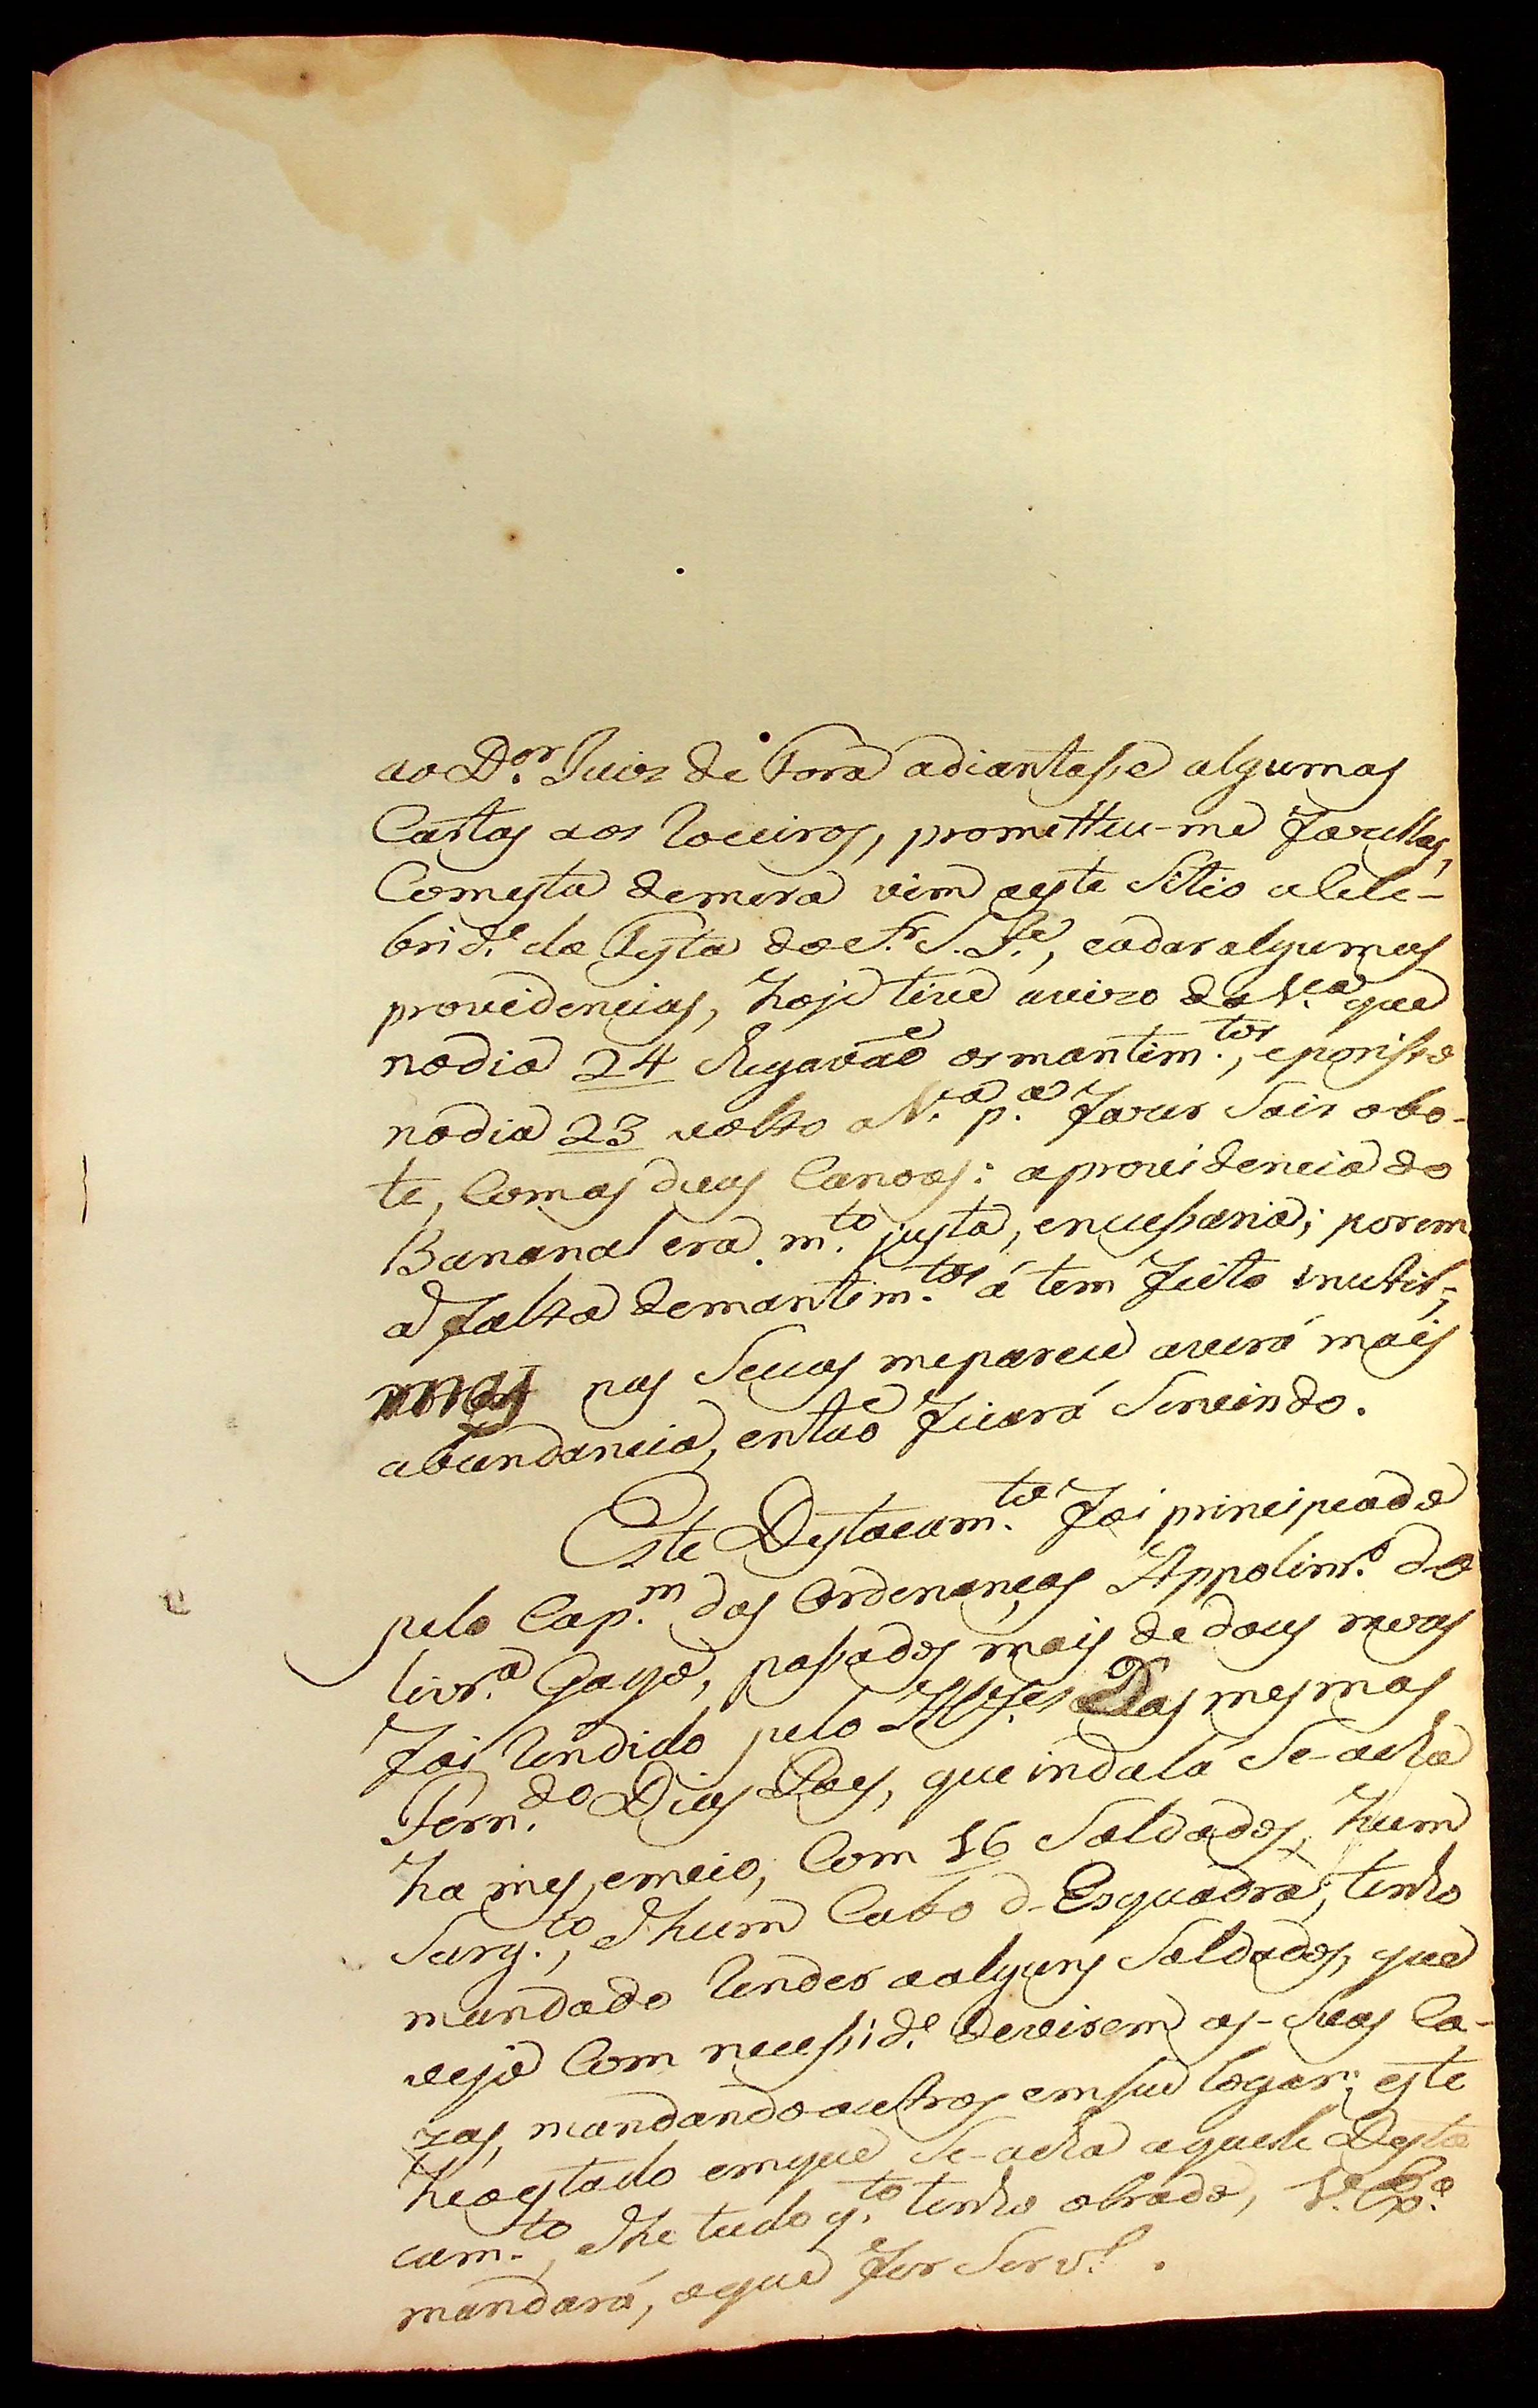 ao D.or Juiz de Fora adiantasse algumas
Cartas aos Roceiros, prometteu-me fazellas,
Comesta demora vim aeste Sitio a Cele-
brid.e da Festa do S.r S. J.e, eadar algumas
providencias, hoje tive avizo da V.a que
nodia 24 chegavaõ osmantim.tos, eporisso
nodia 23 volto a V.a p.a fazer Sair obo-
te, Comas duas Canoas: aprovidencia do
Bananal era m.to justa, enecessaria; porem
a falta demantim.tos á tem feito inutil;
mas nas Secas meparece averá mais
abundancia, entaõ ficará Servindo.
Este Destacam.to foi principeado
pelo Cap.m das Ordenanças Appolinr.o de
livr.a Gago, passados mais de dous mezes
foi Rendido pelo Alf.es Das mesmas
Fern.do Dias Paes, que indalá Se-acha
ha mes, emeio, Com 16 Soldados, hum
Sarg.to, ehum Cabo d-Esquadra; tenho
mandado Render aalguns Soldados, que
vejo Com necessid.e devirem as-Suas Ca-
zas, mandando outros emseu logar; este
heoestado emque Se-acha aquele Desta
cam.to, ehe tudo q.to tenho obrado, V. Ex.a
mandará, oque for Serv.o.